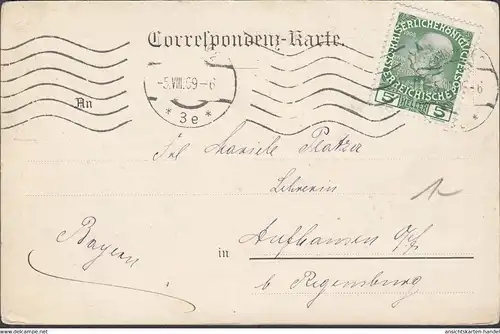 Correspondenz-Karte.
KAISERLICHE KÖNIGLICHE ÖSTERREICHISCHE POST
5 HELLER 5
-5.VIII.09-6
* 3e *
An
Frl Mariele Platzer
Lehrerin
in Aufhausen
Bayern
b Regensburg
ansichtskarten-handel